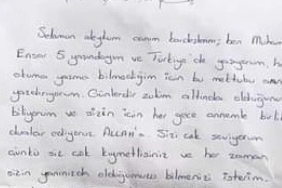 Selamun aleykum canım kardeşlerim; ben Muham
Ensar 5 yaşındayım ve Türkiye de yaşıyorum, h
okuma yazma bilmediğim için bu mektubu
yazdırıyorum. Günlerdir zulüm altında olduğunu
biliyorum ve sizin için her gece annemle birli
dualar ediyoruz ALLAH'a. Sizi çok seviyorum
çünkü siz çok kıymetlisiniz ve her zaman
sizin yanınızda olduğumuzu bilmenizi isterim.